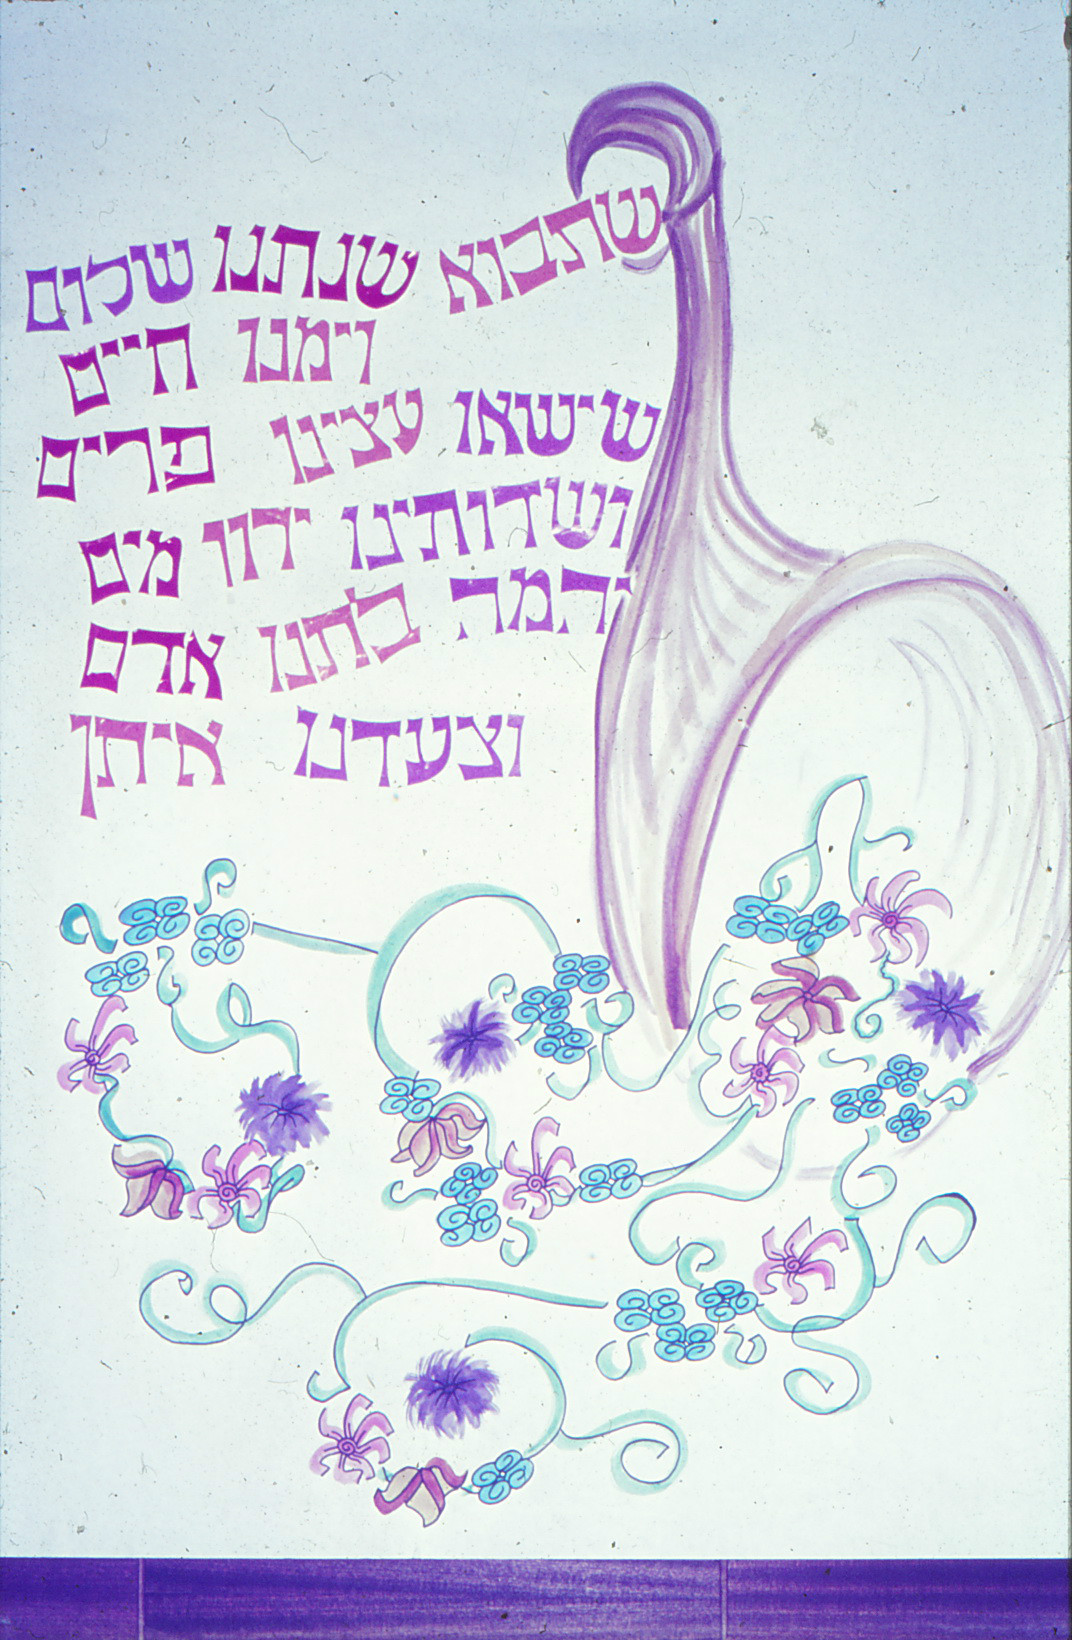 שתבוא שנתנו שלום
וימנו חיים
שישאו עצינו פרים
ושדותינו ירוו מים
יהמה בתנו אדם
וצעדנו איתן